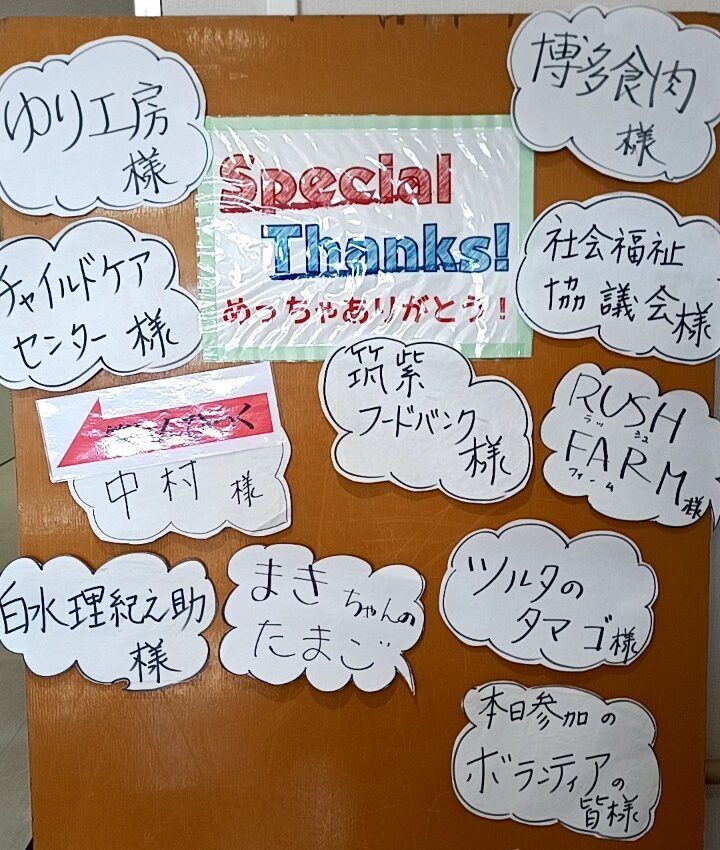 ゆり工房
様
博多食肉
様
Special
Thanks!
めっちゃありがとう!
チャイルドケア
センター様
社会福祉
協議会様
中村様
筑紫
フードバンク
様
RUSH
ラッシュ
FARM様
ファーム
白水理紀之助
様
まきちゃんの
たまご
ツルタの
タマゴ様
本日参加の
ボランティアの
皆様